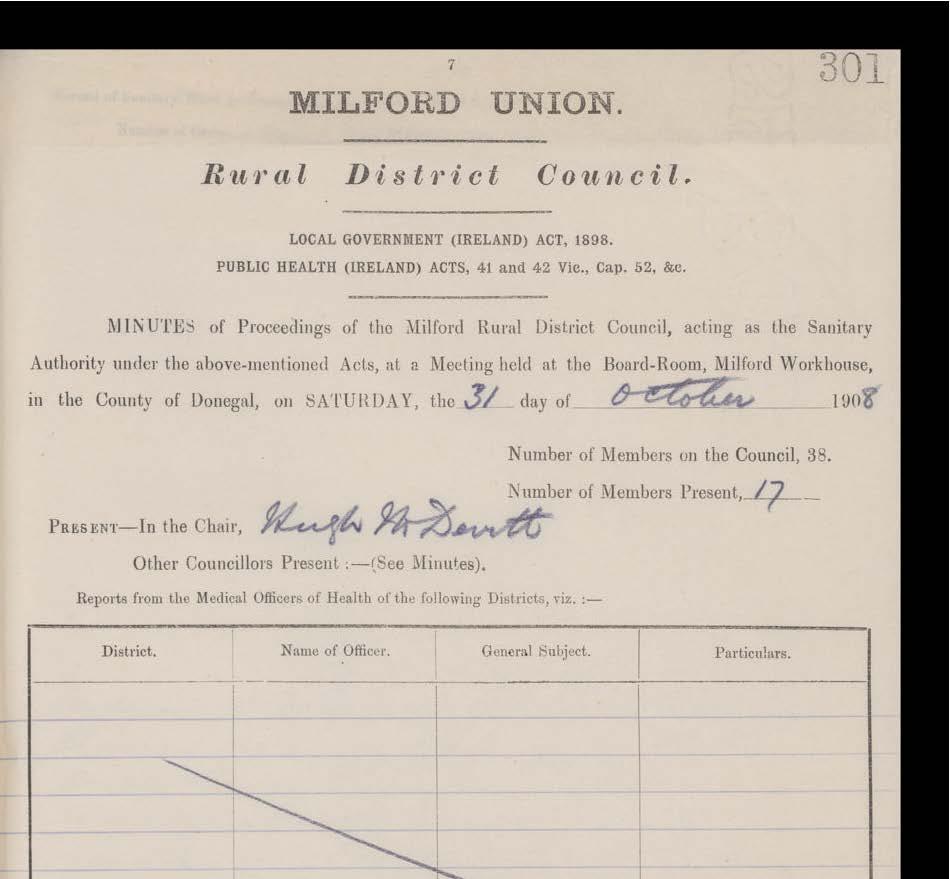 7
301
MILFORD UNION.
Rural District Council.
LOCAL GOVERNMENT (IRELAND) ACT, 1898.
PUBLIC HEALTH (IRELAND) ACTS, 41 and 42 Vic., Cap. 52, &c.
MINUTES of Proceedings of the Milford Rural District Council, acting as the Sanitary
Authority under the above-mentioned Acts, at a Meeting held at the Board-Room, Milford Workhouse,
in the County of Donegal, on SATURDAY, the 31 day of October 1908
Number of Members on the Council, 38.
Number of Members Present, 17
PRESENT—In the Chair, Hugh McDevitt
Other Councillors Present :—(See Minutes).
Reports from the Medical Officers of Health of the following Districts, viz. :—
District. Name of Officer. General Subject. Particulars.